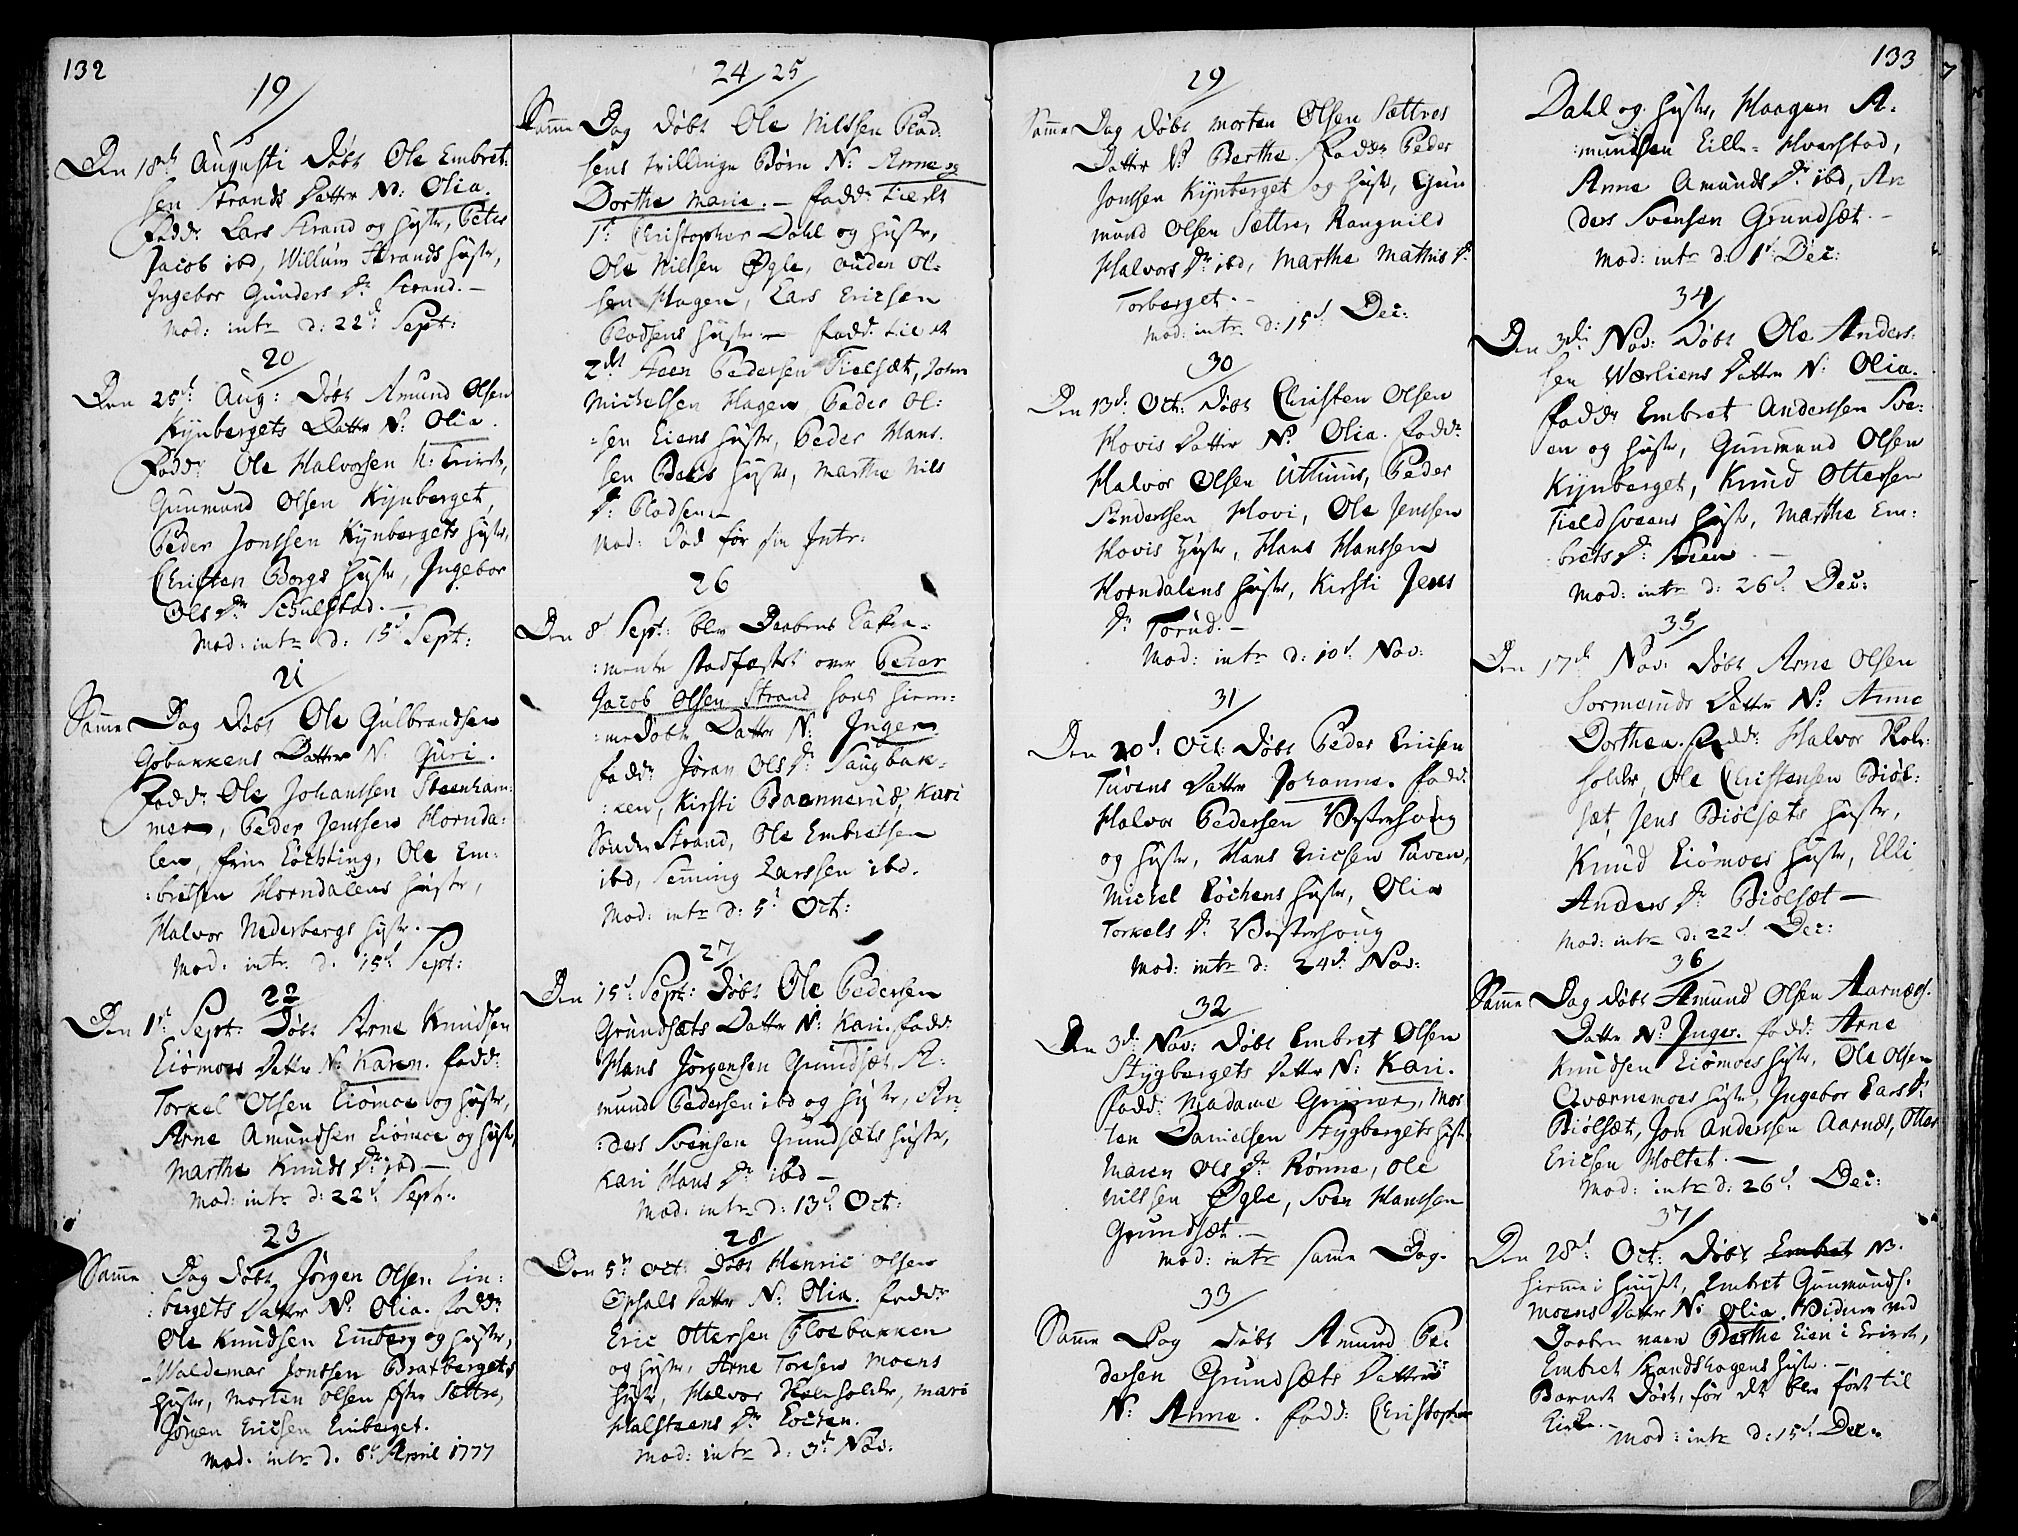 132
19
Den 18de Augusti Døbt Ole Embret:
sen Strands Datter N: Olia.
Fadd: Lars Strand og hustr, Peter
Jacob ibd, Willum Strands hustr,
Ingebor Gunders Dr Strand. —
Mod: intr d: 22d Sept:
20
Den 25d Aug: Døbt Amund Olsen
Kynbergets Datter N: Olia.
Fadd: Ole Halvorsen
Gunmund Olsen Kynberget,
Peder Jonssen Kynbergets hustr,
Christen Borgs hustr, Ingebor
Ols Dr Schulstad. —
Mod: intr d: 15d Sept:
21
Samme Dag Døbt Ole Gulbrandsen
Gobakkens Datter N: Guri.
Fadd: Ole Johanssen Steenham:
mer, Peder Jenssen Hornda:
len, Ole Em:
:bretsen Horndalens hustr,
Halvor Nederbergs hustr. —
Mod: intr d: 15d Sept:
22
Den 1st Sept: Døbt Arne Knudsen
Eiømoes Datter N: Karen. Fadd:
Torkel Olsen Eiømoe og hustr,
Arne Amundsen Eiømoe og hustr,
Marthe Knuds Dr ibd —
Mod: intr d: 22d Sept:
23
Samme Dag Døbt Jørgen Olsen Ein:
:bergets Datter N: Olia. Fadd:
Ole Knudsen Emberg og hustr,
Waldemar Jonssen Braxbergets
hustr, Morten Olsen Sættre,
Jørgen Ericsen Einberget.
Mod. intr d. 6t April 1777
24/25
Samme Dag Døbt Ole Nilssen Plad:
sens tvillinge Børn N: Anne og
Dorthe Marie. — Fadd: til det
1st Christopher Dahl og hustr,
Ole Nilsen Øgle, Auden Ol:
sen Hagen, Lars Ericsen
Pladsens hustr — Fadd: til det
2det Steen Pedersen Fielsæt, John
Michelsen Hagen, Peder Ol:
:sen Eiens hustr, Peder Hans.
sen Bekis hustr, Marthe Nils
Dr Pladsen —
Mod: Død før sin Intr:
26
Den 8d Sept: blev Daabens Sakra:
:mente stadfæstet over Peter
Jacob Olsen Strand hans hiem:
:medøbte Datter N: Inger
Fadd: Jøran Ols Dr Haugbak:
:ken, Kirsti Baannerud, Kari
Sønder Strand, Ole Embretsen
ibd, Semming Larssen ibd.
Mod: intr d: 5d Oct:
27
Den 15d Sept: Døbt Ole Pedersen
Grundsæts Datter N: Kari. Fadd:
Hans Jørgensen Grundsæt, A:
mund Pedersen ibd og hustr, An:
:ders Svensen Grundsæts hustr,
Kari Hans Dr ibd —
Mod: intr d: 13d Oct:
28
Den 5te Oct: Døbt Henric Olsen
Opsals Datter N: Olia. Fadd:
Eric Ottersen Floebakken
og hustr, Arne Toresen Moens
hustr, Halvor Kolsholdr, Mari
Halsteens Dr Løchen.
Mod: intr d: 3d Nov:
29
Samme Dag Døbt Morten Olsen Sættres
Datter N: Berthe. Fadd: Peder
Jonssen Kynberget og hustr, Gun
mund Olsen Sættre, Rangnild
Halvors Dr ibd, Marthe Mathis Dr
Torberget. —
Mod: intr: d: 15d Dec:
30
Den 13d Oct: Døbt Christen Olsen
Hovis Datter N: Olia. Fadd:
Halvor Olsen Uthuus, Peder
Anderssen Hovi, Ole Jenssen
Hovis hustr, Hans Hanssen
Horndalens hustr, Kirsti Jens
Dr Torud. —
Mod: intr d: 10d Nov:
31
Den 20d Oct: Døbt Peder Ericsen
Tuvens Datter Johanne. Fadd:
Halvor Pedersen Vesterhoug
og hustr, Hans Ericsen Tuven,
Mickel Løchens hustr, Olia
Torkels Dr Vesterhoug
Mod: intr d: 24d Nov:
32
Den 3d Nov: Døbt Embret Olsen
Stygbergets Datter N: Kari.
Fadd: Madame Grüner, Mor
ten Danielsen Stygbergets hustr
Maren Ols Dr Rønne, Ole
Nilssen Øgle, Sven Hanssen
Grundsæt. —
Mod: intr samme Dag.
33
Samme Dag Døbt Amund Pe:
dersen Grundsæts Datter
N: Anne. Fadd: Christopher
133
Dahl og hustr, Haagen A:
:mundsen Hverstad,
Anne Amunds Dr ibd, An
ders Svensen Grundsæt. —
Mod: intr d: 1st Dec:
34
Den 3die Nov: Døbt Ole Anders:
sen Wærliens Datter N: Olia.
Fadd: Embret Anderssen Sve:
en og hustr, Gunmund Olsen
Kynberget, Knud Ottersen
Fieldsveens hustr, Marthe Em:
:brets Dr Steen. —
Mod: intr d: 26d Dec:
35
Den 17d Nov: Døbt Arne Olsen
Sormunds Datter N: Anne
Dorthea. Fadd: Halvor Kols:
holdr, Ole Christensen Biøl:
sæt, Jens Biølsæts hustr,
Knud Eiømoes hustr, Elli
Anders Dr Biølsæt —
Mod: intr d: 22d Dec:
36
Samme Dag Døbt Amund Olsen Aarnæs.
Datter N: Inger. Fadd: Arne
Knudsen Eiømoes hustr, Ole Olsen
Qværnemoes hustr, Ingebor Lars Dr
Biølsæt, Jon Anderssen Aarnæs, Otter
Ericsen Moltet. —
Mod: intr d: 26d Dec:
37
Den 28d Oct: Døbt Embret NB.
hiemme i huuset, Embret Gunmunds.
Moens Datter N: Olia. Vidner ved
Daaben vare Berthe Eien i Elvrum,
Embret Strandshagens hustr. —
Barnet døde, før det blev ført til
Kirke. —
Mod: intr d: 15d Dec.